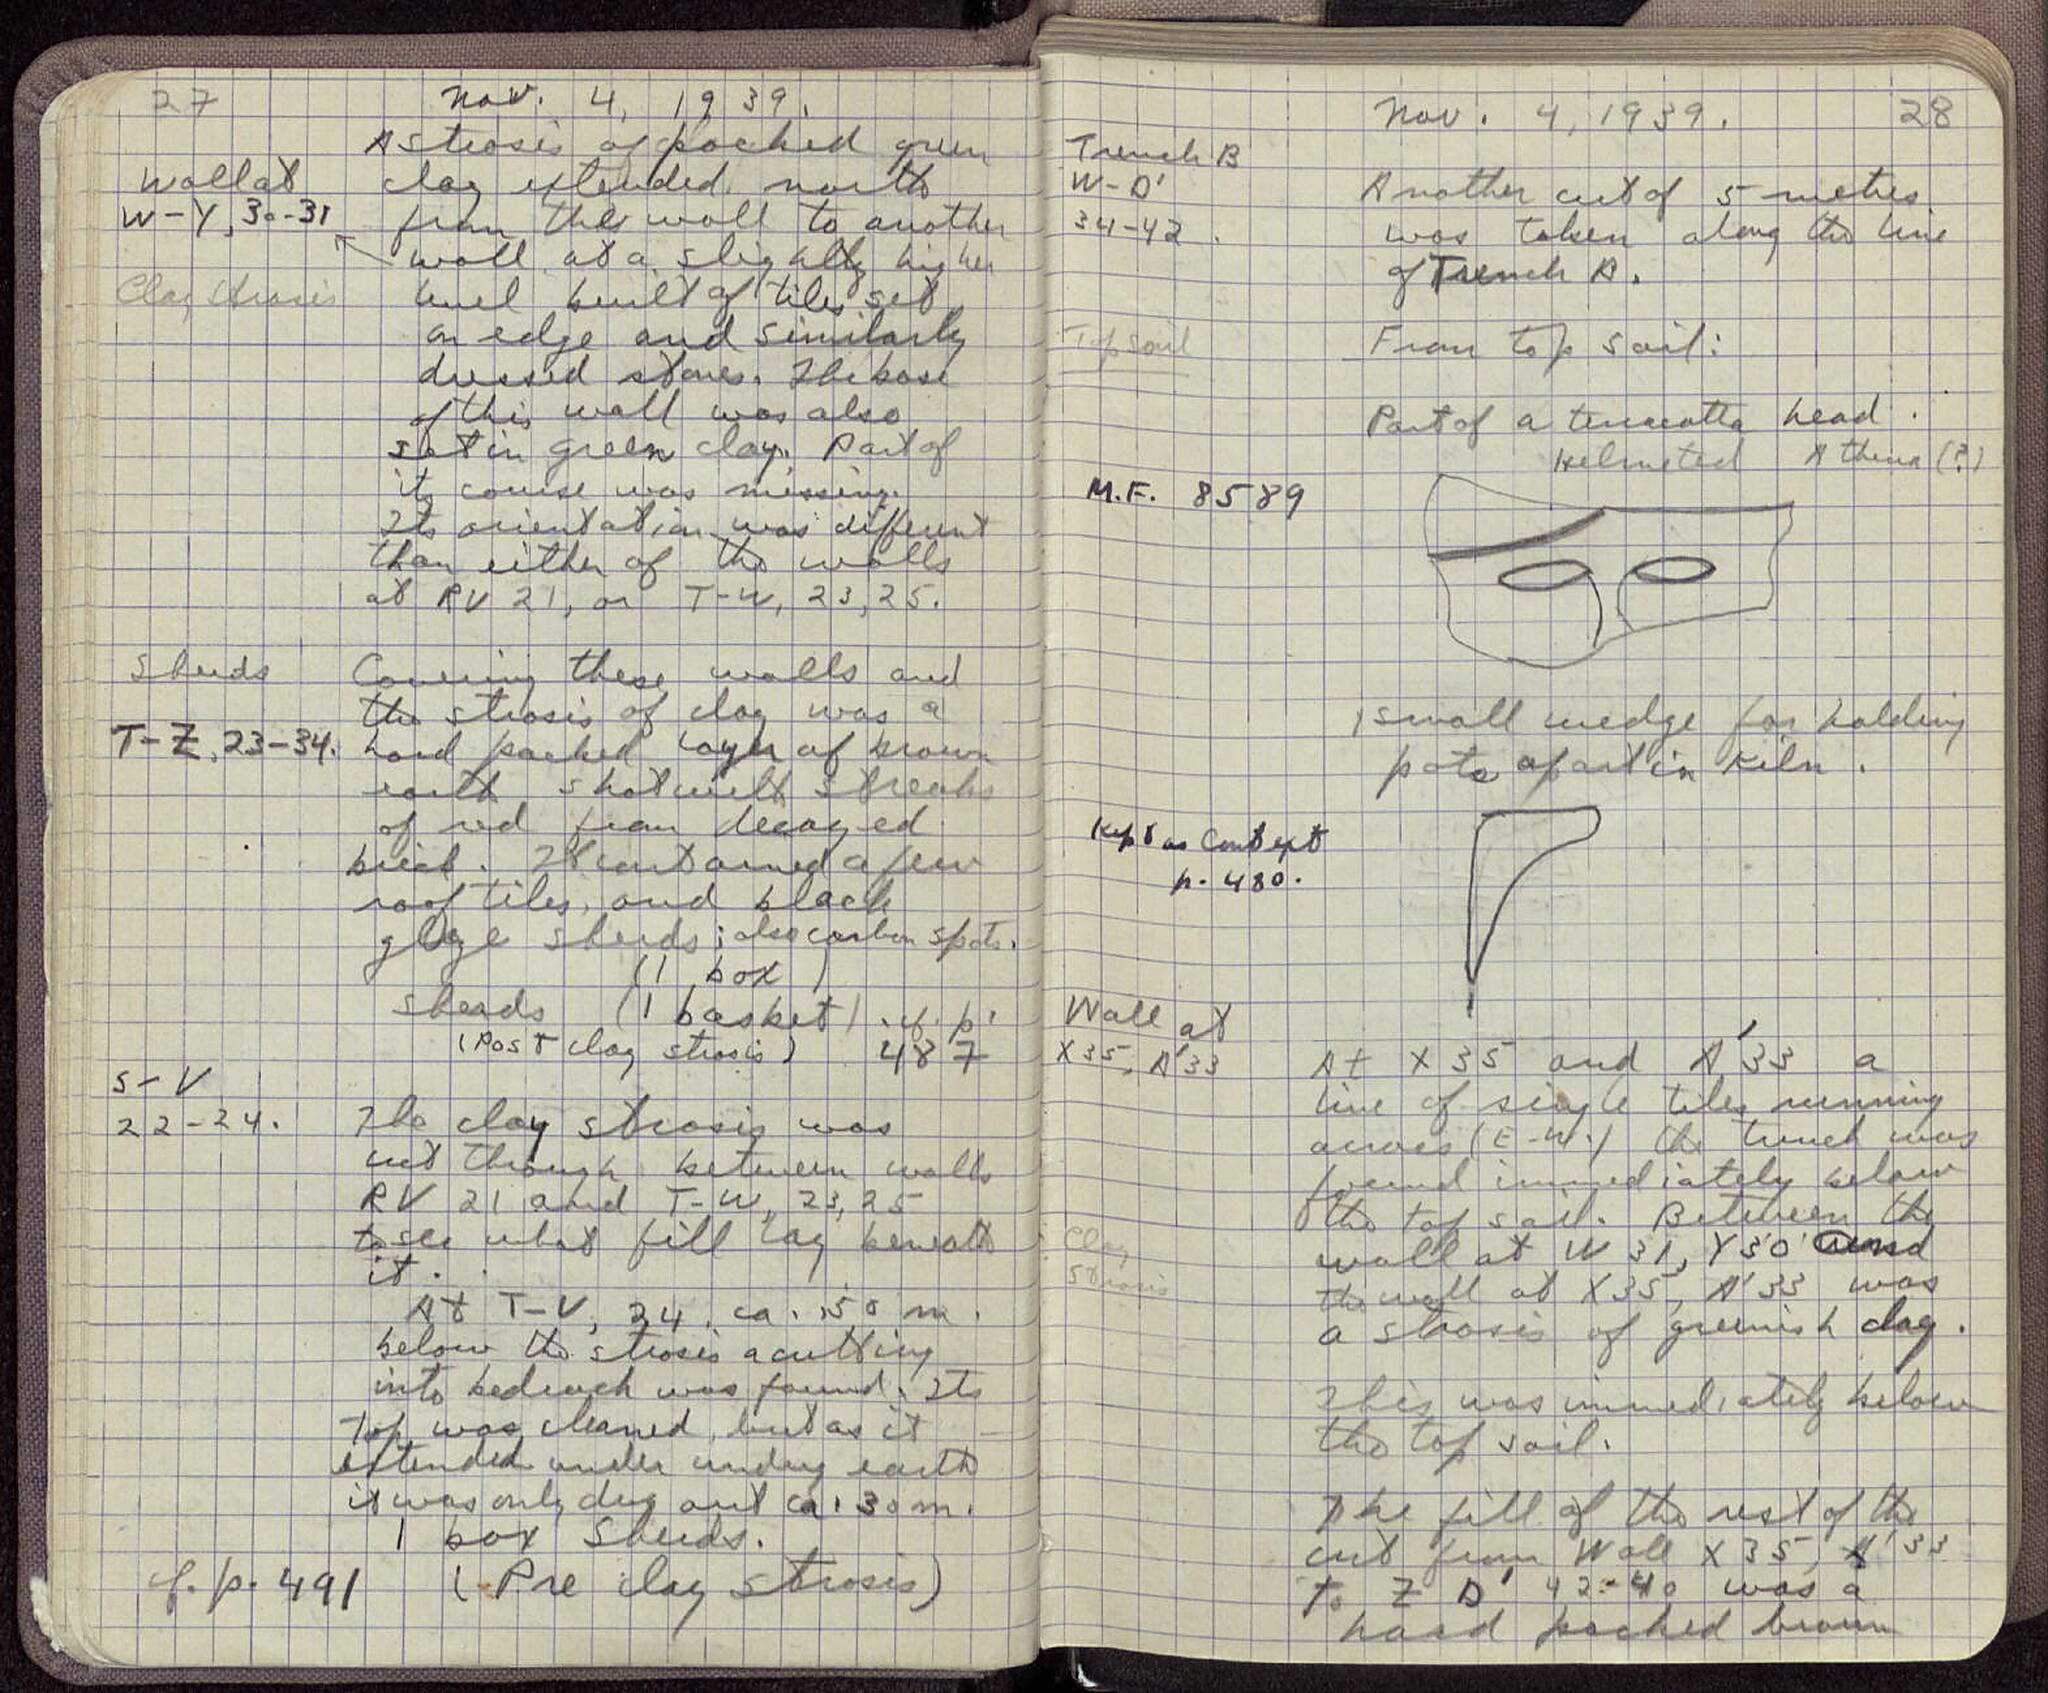 27
Nov. 4, 1939.
A strosis of packed green
Wall at
clay extended north
W-Y, 30-31
from the wall to another
wall at a slightly higher
Clay strosis
level built of tiles set
on edge and similarly
dressed stones. The base
of this wall was also
set in green clay. Part of
its course was missing.
Its orientation was different
than either of the walls
at RV 21, or T-W, 23, 25.
Sherds
Covering these walls and
the strosis of clay was a
T-Z, 23-34.
hard packed layer of brown
earth shot with streaks
of red from decayed
brick. It contained a few
roof tiles, and black
glaze sherds; also carbon spots.
(1 box)
sherds (1 basket) cf. p.
(Post clay strosis) 487
S-V
22-24.
The clay strosis was
cut through between walls
RV 21 and T-W, 23, 25
to see what fill lay beneath
it.
At T-V, 24, ca. .50 m.
below the strosis a cutting
into bedrock was found. Its
top was cleaned, but as it
extended under undug earth
it was only dug out ca. .30 m.
1 box sherds.
cf. p. 491 (Pre clay strosis)
Nov. 4, 1939.
28
Trench B
W-D'
34-42.
Another cut of 5 metres
was taken along the line
of Trench A.
Top soil
From top soil:
Part of a terracotta head.
Helmeted Athena (?)
M.F. 8589
1 small wedge for holding
pots apart in kiln.
Kept as Context
p. 480.
Wall at
X35, A'33
At X 35 and A'33 a
line of single tiles running
across (E-W.) the trench was
found immediately below
the top soil. Between the
Clay
strosis
wall at W 31, Y30 and
the wall at X35, A'33 was
a strosis of greenish clay.
This was immediately below
the top soil.
The fill of the rest of the
cut from Wall X35, A'33
To Z D' 42-40 was a
hard packed brown